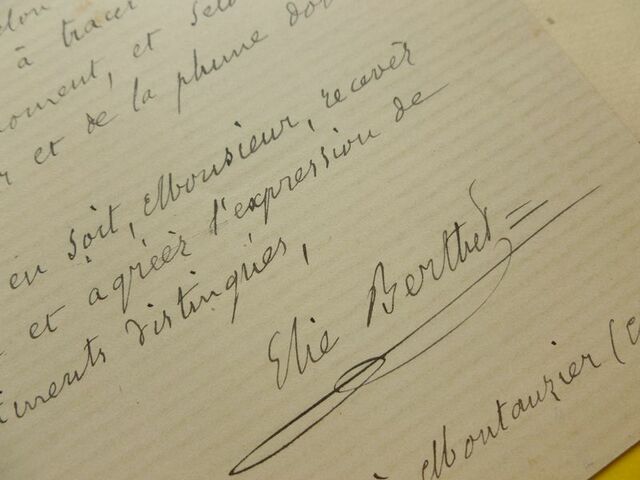 à tracer
et
et de la plume
en soit, Monsieur, recevèr
et agréèr l'expression de
distingués,
Elie Berthet
Montauzier